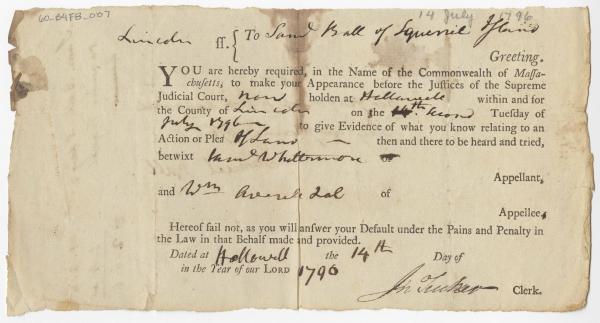 60-84FB-007
14 July 1796
Lincoln ss. { To Saml Ball of Squerril Island
Greeting.
YOU are hereby required, in the Name of the Commonwealth of Massa-
chusetts, to make your Appearance before the Justices of the Supreme
Judicial Court, now holden at Hallowell within and for
the County of Lincoln on the second Tuesday of
July 1796 to give Evidence of what you know relating to an
Action or Plea of Land then and there to be heard and tried,
betwixt Saml Whittemore of
Appellant,
and Wm of
Appellee,
Hereof fail not, as you will answer your Default under the Pains and Penalty in
the Law in that Behalf made and provided.
Dated at Hallowell the 14th Day of
in the Year of our LORD 1796
Jn Tucker Clerk.